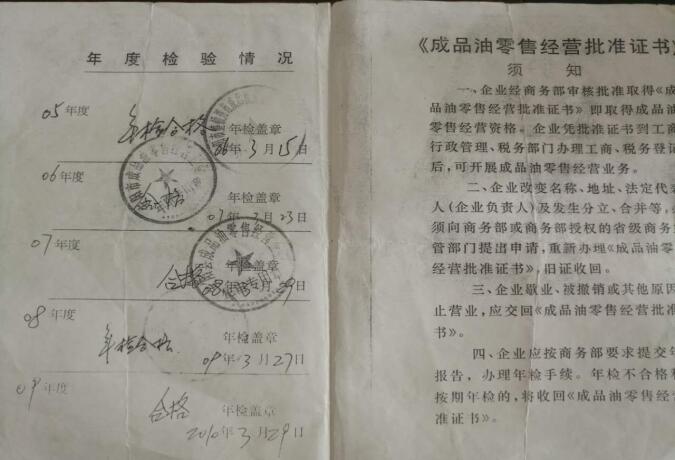 年度检验情况
05年度
年检合格
年检盖章
06年3月15日
06年度
合格
年检盖章
07年3月23日
07年度
合格
年检盖章
08年度
年检合格
年检盖章
09年3月27日
09年度
合格
年检盖章
2010年3月29日
《成品油零售经营批准证书》
须知
一、企业经商务部审核批准取得《成
品油零售经营批准证书》即取得成品油
零售经营资格。企业凭批准证书到工商
行政管理、税务部门办理工商、税务登记
后，可开展成品油零售经营业务。
二、企业改变名称、地址、法定代表
人(企业负责人)及发生分立、合并等，
须向商务部或商务部授权的省级商务主
管部门提出申请，重新办理《成品油零售
经营批准证书》，旧证收回。
三、企业歇业、被撤销或其他原因
止营业，应交回《成品油零售经营批准
书》。
四、企业应按商务部要求提交年
报告，办理年检手续。年检不合格
按期年检的，将收回《成品油零售经营
准证书》。